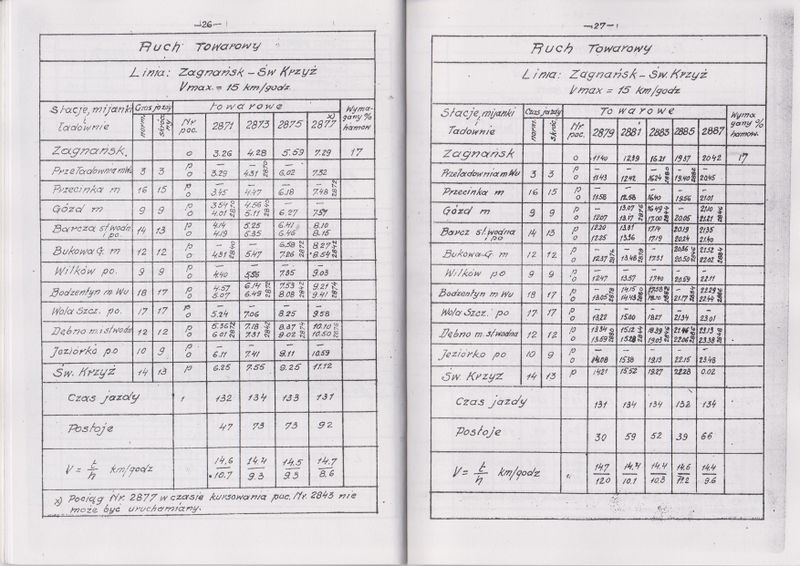 —26—
Ruch Towarowy
Linia: Zagnańsk – Św Krzyż
Vmax = 15 km/godz.
Stacje, mijanki i ładownie Czas jazdy norm. skróc. Nr poc. towarowe Wymagany % hamow.
2871 2873 2875 2877 x)
Zagnańsk. o 3.26 4.28 5.59 7.29 17
Przeładownia m Wu 3 3 p — — — —
o 3.29 4.31 6.02 7.32
Przecinka m 16 15 p — — — —
o 3.45 4.47 6.18 7.48
Gózd m 9 9 p 3.54 4.56 — —
o 4.01 5.11 6.27 7.57
Barcza st.wodn i po. 14 13 p 4.14 5.25 6.41 8.10
o 4.19 5.35 6.46 8.15
Bukowa G. m 12 12 p — — 6.58 8.27
o 4.31 5.47 7.26 8.54
Wilków po. 9 9 p — — — —
o 4.40 5.56 7.35 9.03
Bodzentyn m Wu 18 17 p 4.57 6.14 7.53 9.21
o 5.07 6.49 8.08 9.41
Wola Szcz. po 17 17 p — — — —
o 5.24 7.06 8.25 9.58
Dębno m i st wodn 12 12 p 5.36 7.18 8.37 10.10
o 6.01 7.31 9.02 10.50
Jeziorko po 10 9 p — — — —
o 6.11 7.41 9.11 10.59
Św. Krzyż 14 13 p 6.25 7.55 9.25 11.12
Czas jazdy 132 134 133 131
Postoje 47 73 73 92
V = t/h km/godz 14,6/10.7 14.4/9.3 14.5/9.3 14.7/8.6
x) Pociąg Nr. 2877 w czasie kursowania poc. Nr. 2843 nie
może być uruchamiany.
—27—
Ruch Towarowy
Linia: Zagnańsk – Św. Krzyż
Vmax = 15 km/godz.
Stacje, mijanki i ładownie Czas jazdy norm. skróc. Nr poc. Towarowe Wymagany % hamow.
2879 2881 2883 2885 2887
Zagnańsk o 11.40 12.39 16.21 19.37 20.42 17
Przeładownia m Wu 3 3 p — — — — —
o 11.43 12.42 16.24 19.40 20.45
Przecinka m 16 15 p — — — — —
o 11.58 12.58 16.40 19.56 21.01
Gózd m 9 9 p — 13.07 16.49 — 21.10
o 12.07 13.17 17.00 20.05 21.21
Barcz st.wodna i po 14 13 p 12.20 13.31 17.14 20.19 21.35
o 12.25 13.36 17.19 20.24 21.40
Bukowa G. m 12 12 p — — — 20.36 21.52
o 12.37 13.48 17.31 20.50 22.02
Wilków po 9 9 p — — — — —
o 12.47 13.57 17.40 20.59 22.11
Bodzentyn m Wu 18 17 p — 14.15 17.58 — 22.29
o 13.05 14.43 18.10 21.17 22.44
Wola Szcz. po 17 17 p — — — — —
o 13.22 15.00 18.27 21.34 23.01
Dębno m. st wodna 12 12 p 13.34 15.12 18.39 21.46 23.13
o 13.59 15.28 19.03 22.06 23.38
Jeziorko po 10 9 p — — — — —
o 14.08 15.38 19.13 22.15 23.48
Św Krzyż 14 13 p 14.21 15.52 19.27 22.28 0.02
Czas jazdy 131 134 134 132 134
Postoje 30 59 52 39 66
V = t/h km/godz 14.7/12.0 14.4/10.1 14.4/10.3 14.6/11.2 14.4/9.6